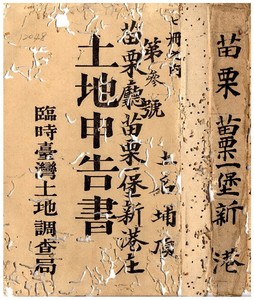 苗栗 苗栗一堡新港
七冊之內
第參號
苗栗廳苗栗一堡新港庄
土地申告書
臨時臺灣土地調查局